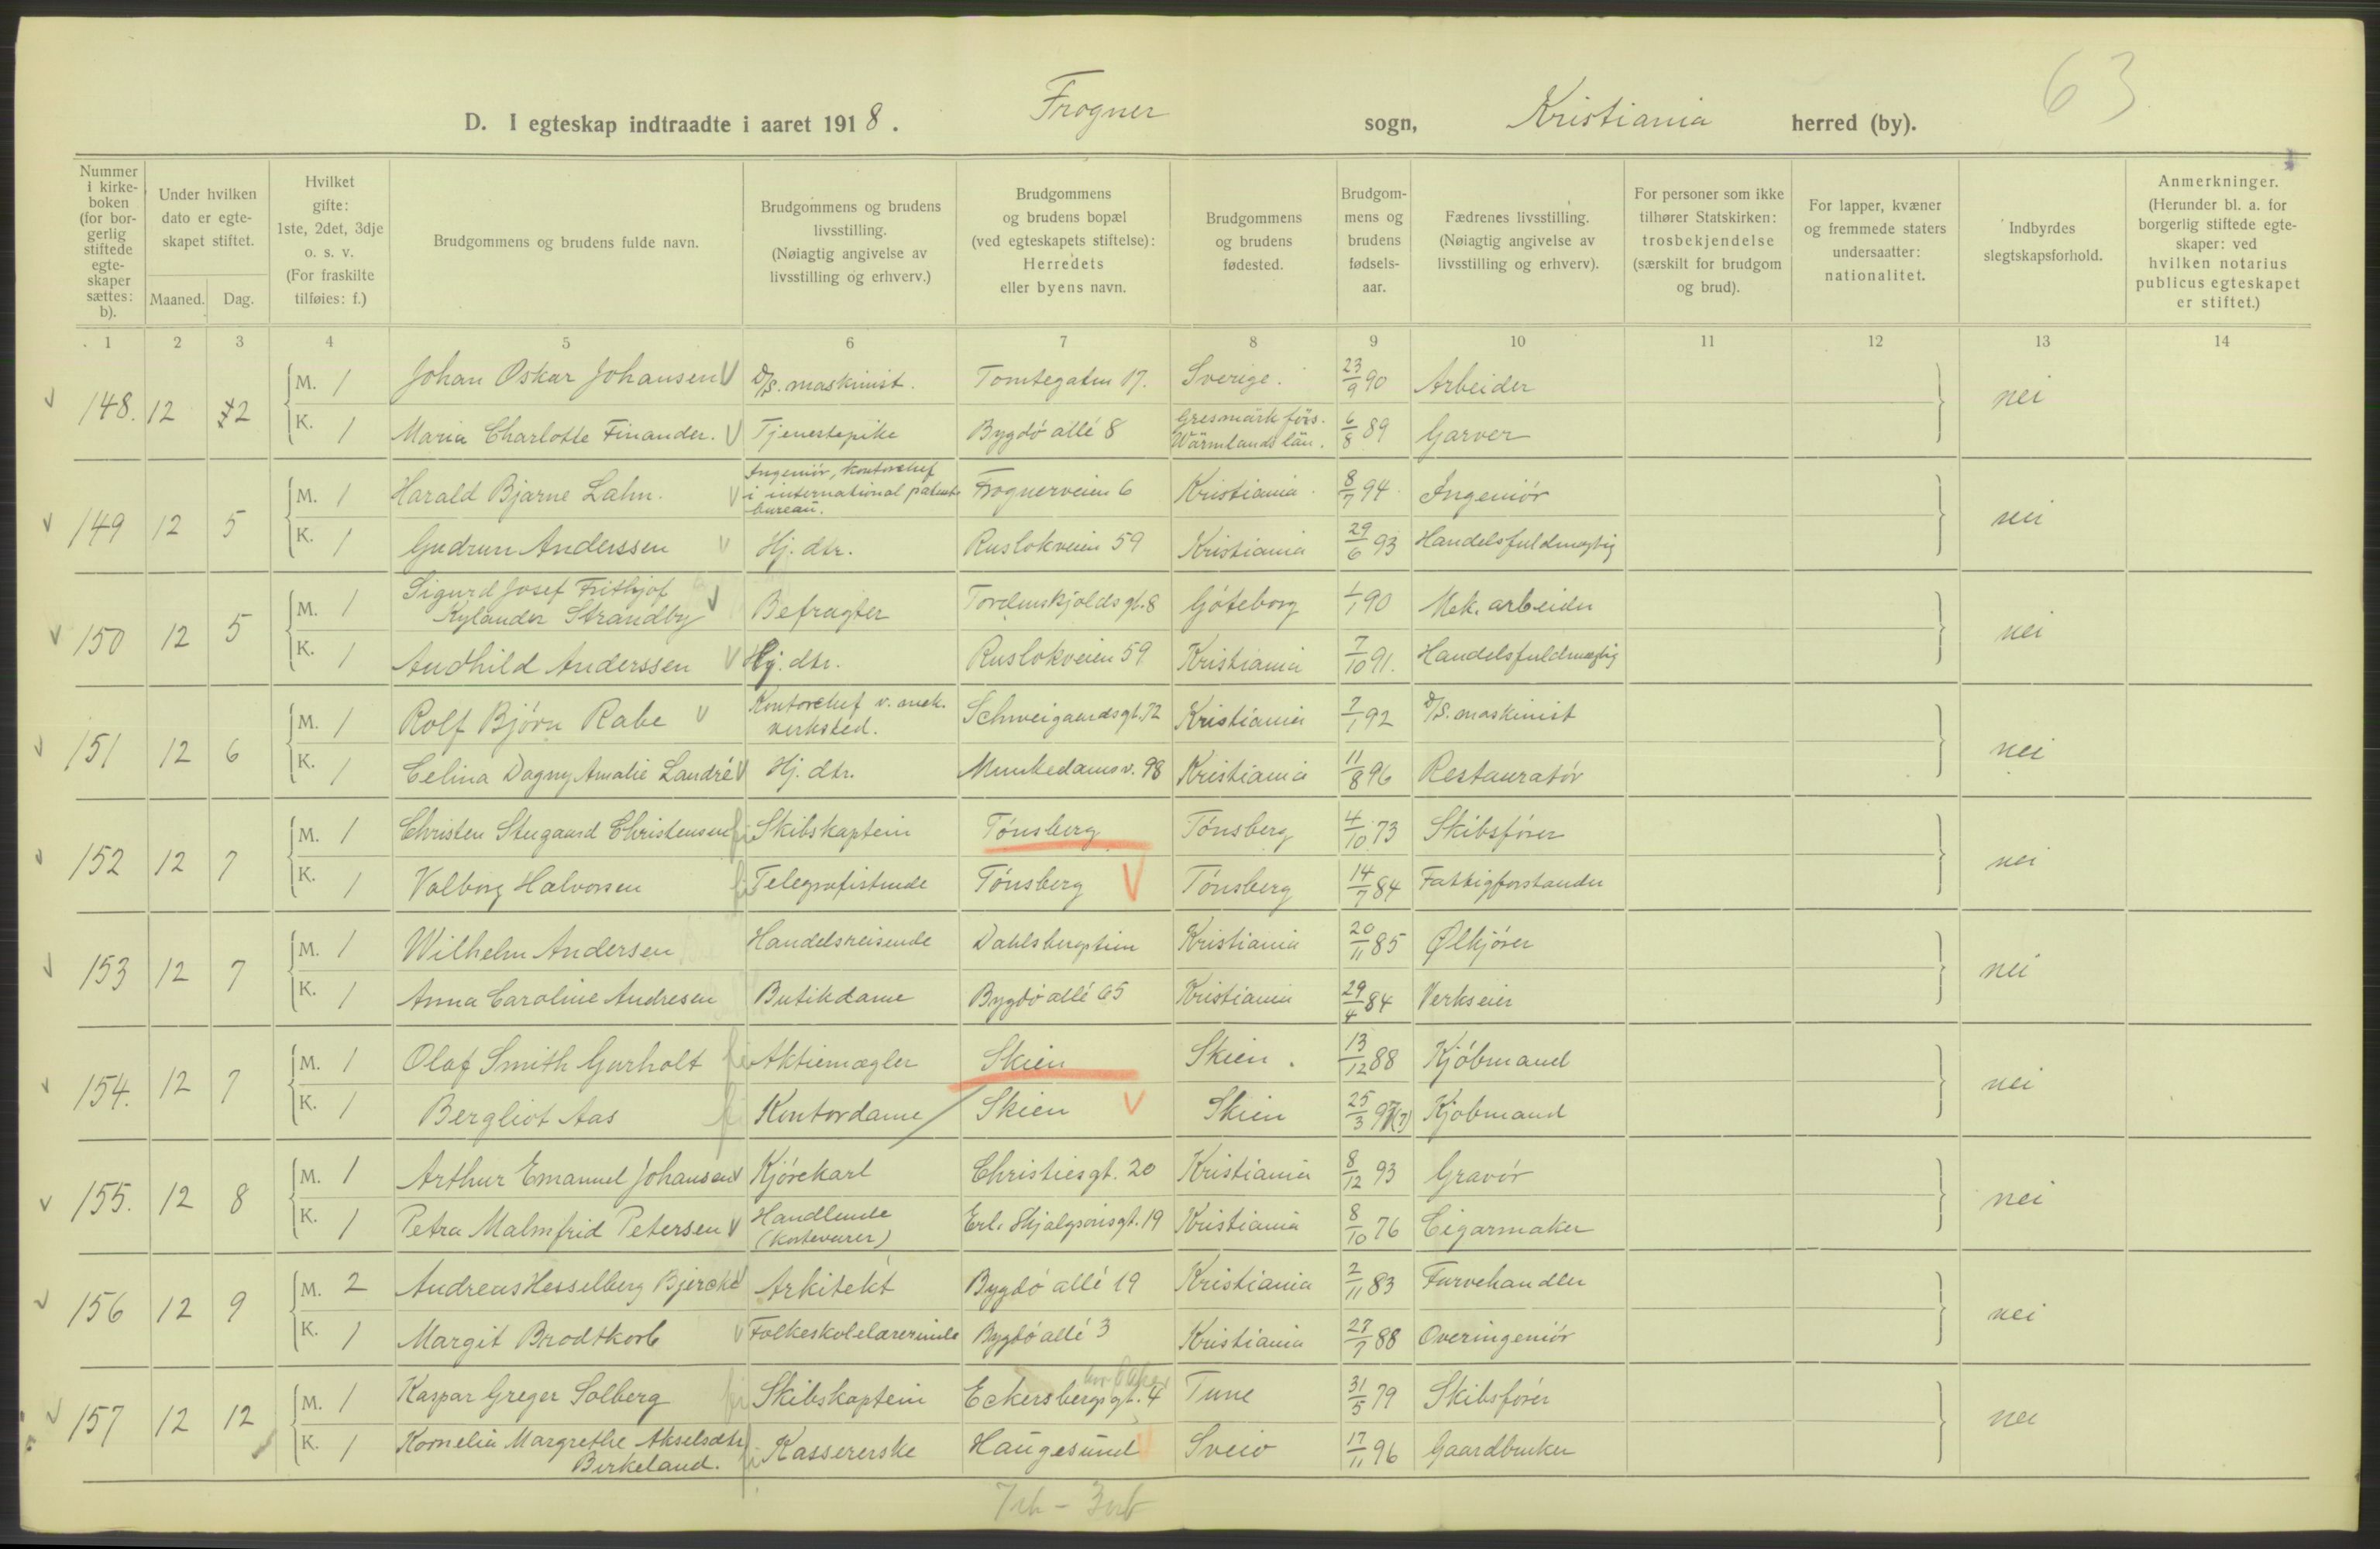 63
D. I egteskap indtraadte i aaret 1918. Frogner sogn, Kristiania herred (by).
Nummer i kirke-boken (for bor-gerlig stiftede egte-skaper sættes: b).
Under hvilken dato er egte-skapet stiftet.
Maaned. Dag.
Hvilket gifte: 1ste, 2det, 3dje o. s. v. (For fraskilte tilføies: f.)
Brudgommens og brudens fulde navn.
Brudgommens og brudens livsstilling. (Nøiagtig angivelse av livsstilling og erhverv.)
Brudgommens og brudens bopæl (ved egteskapets stiftelse): Herredets eller byens navn.
Brudgommens og brudens fødested.
Brudgom-mens og brudens fødsels-aar.
Fædrenes livsstilling. (Nøiagtig angivelse av livsstilling og erhverv).
For personer som ikke tilhører Statskirken: trosbekjendelse (særskilt for brudgom og brud).
For lapper, kvæner og fremmede staters undersaatter: nationalitet.
Indbyrdes slegtskapsforhold.
Anmerkninger. (Herunder bl. a. for borgerlig stiftede egte-skaper: ved hvilken notarius publicus egteskapet er stiftet.)
1 2 3 4 5 6 7 8 9 10 11 12 13 14
148. 12 2 M. 1 Johan Oskar Johansen D/S. maskinist. Tomtegaten 17. Sverige. 23/9 90 Arbeider nei
K. 1 Maria Charlotte Finander. Tjenestepike Bygdö allé 8 Gresmark förs. Wärmlands län. 6/8 89 Garver
149 12 5 M. 1 Harald Bjarne Lahn. Ingeniör, kontorchef i international patentbureau. Frognerveien 6 Kristiania 8/7 94 Ingeniör nei
K. 1 Gudrun Anderssen Hj. dtr. Ruslokveien 59 Kristiania 29/6 93 Handelsfuldmægtig
150 12 5 M. 1 Sigurd Josef Frithjof Kylander Strandby Befragter Tordenskjolds gt. 8 Göteborg 1/1 90 Mek. arbeider nei
K. 1 Audhild Anderssen Hj. dtr. Ruslokveien 59 Kristiania 7/10 91. Handelsfuldmægtig
151 12 6 M. 1 Rolf Björn Rabe Kontorchef v. mek. verksted. Schweigaardsgt. 72 Kristiania 7/1 92 D/S. maskinist nei
K. 1 Celina Dagny Amalie Landré Hj. dtr. Munkedamsv. 98 Kristiania 11/8 96 Restauratör
152 12 7 M. 1 Christen Stugaard Christensen Skibskaptein Tönsberg Tönsberg 4/10 73 Skibsförer nei
K. 1 Valborg Halvorsen Telegrafistinde Tönsberg Tönsberg 14/7 84 Fattigforstander
153 12 7 M. 1 Wilhelm Andersen Handelsreisende Dahlsbergstien Kristiania 20/11 85 Ølkjörer nei
K. 1 Anna Caroline Andresen Butikdame Bygdö allé 65 Kristiania 29/4 84 Verkseier
154. 12 7 M. 1 Olaf Smith Gurholt Aktiemægler Skien Skien. 13/12 88 Kjöbmand nei
K. 1 Bergliot Aas Kontordame Skien Skien 25/3 97(?) Kjöbmand
155. 12 8 M. 1 Arthur Emanuel Johansen Kjörekarl Christiesgt. 20 Kristiania 8/12 93 Gravör nei
K. 1 Petra Malmfrid Petersen Handlende (kortevarer) Erl. Skjalgsonsgt. 19 Kristiania 8/10 76 Cigarmaker
156 12 9 M. 2 Andreas Hesselberg Bjercke Arkitekt Bygdö allé 19 Kristiania 2/11 83 Farvehandler nei
K. 1 Margit Brodtkorb Folkeskolelærerinde Bygdö allé 3 Kristiania 27/7 88 Overingeniör
157 12 12 M. 1 Kaspar Greger Solberg Skibskaptein Eckersbergsgt. 4 Tune 31/5 79 Skibsförer nei
K. 1 Kornelia Margrethe Akselsdtr Birkeland. Kassererske Haugesund Sveio 17/11 96 Gaardbruker